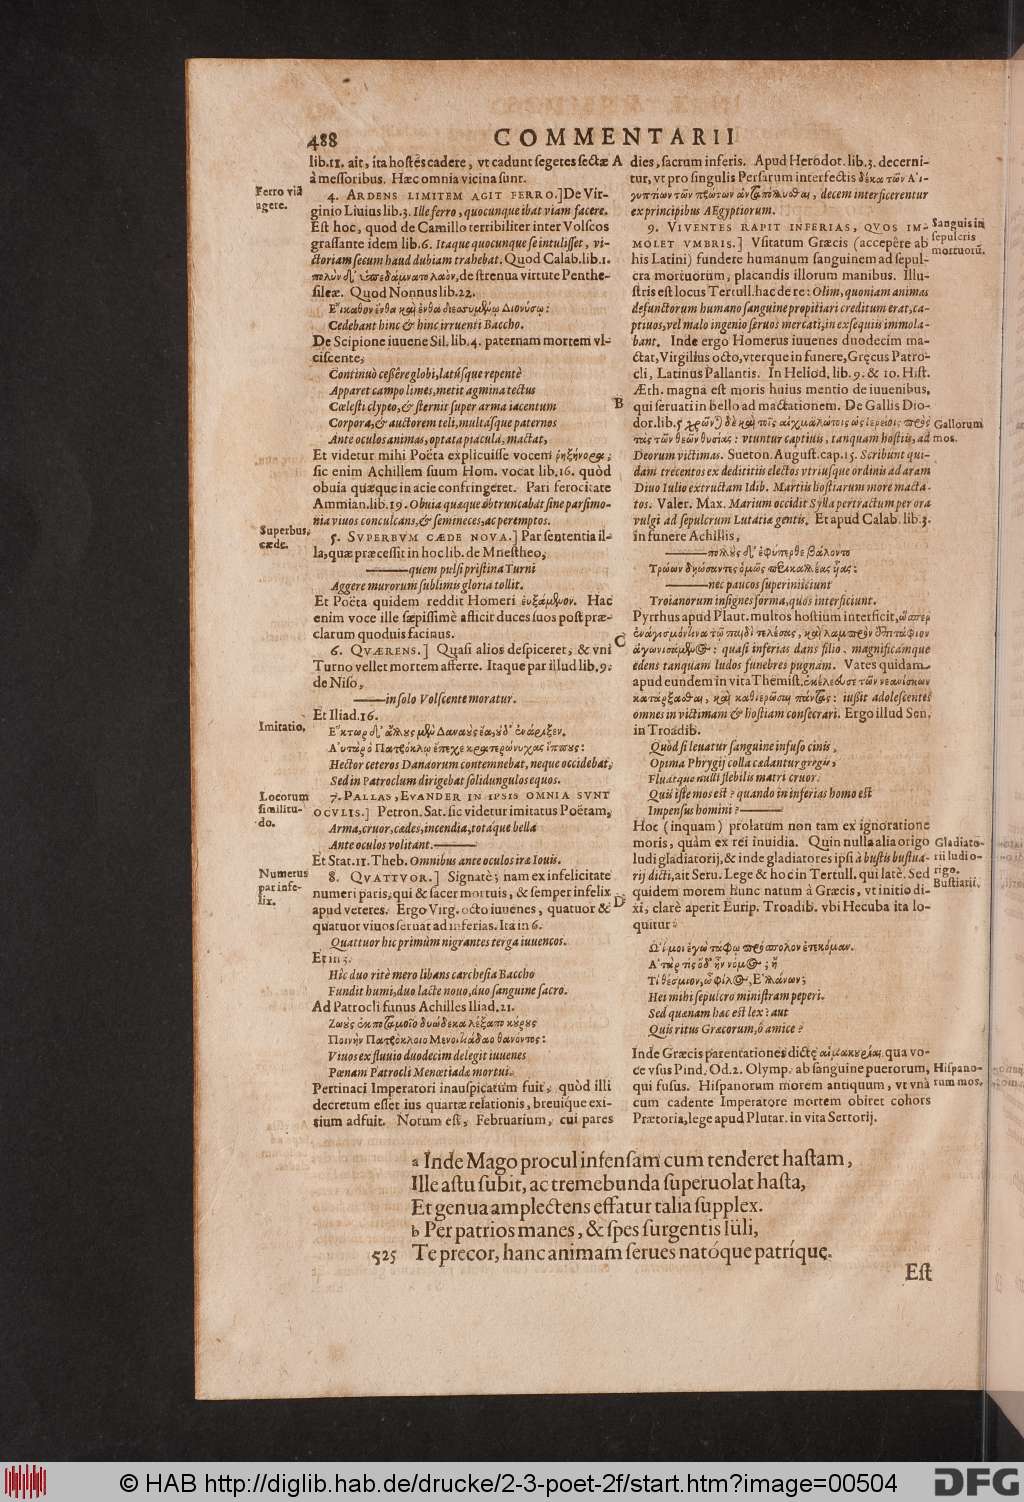 488 COMMENTARII
lib.11. ait, ita hostes cadere, vt cadunt segetes sectæ A
à messoribus. Hæc omnia vicina sunt.
Ferro viã
agere.
4. ARDENS LIMITEM AGIT FERRO.] De Vir-
ginio Liuius lib.3. Ille ferro, quocunque ibat viam facere.
Est hoc, quod de Camillo terribiliter inter Volscos
grassante idem lib.6. Itaque quocunque se intulisset, vi-
ctoriam secum haud dubiam trahebat. Quod Calab.lib.1.
de strenua virtute Penthe-
sileæ. Quod Nonnus lib.22.
Εἴκαθον ἔνθα καὶ ἔνθα διεσσυμένῳ Διονύσῳ:
Cedebant hinc & hinc irruenti Baccho.
De Scipione iuuene Sil. lib.4. paternam mortem vl-
ciscente,
Continuò cessêre globi, latúsque repentè
Apparet campo limes, metit agmina tectus
Cælesti clypeo, & sternit super arma iacentum
Corpora, & auctorem teli, multasque paternos
Ante oculos animas, optata piacula, mactat,
Et videtur mihi Poëta explicuisse vocem ῥηξήνορα;
sic enim Achillem suum Hom. vocat lib.16. quòd
obuia quæque in acie confringeret. Pari ferocitate
Ammian.lib.19. Obuia quæque obtruncabat sine parsimo-
nia viuos conculcans, & semineces, ac peremptos.
Superbus,
cæde.
5. SVPERBVM CÆDE NOVA.] Par sententia il-
la, quæ præcessit in hoc lib. de Mnestheo,
——quem pulsi pristina Turni
Aggere murorum sublimis gloria tollit.
Et Poëta quidem reddit Homeri εὐξάμενον. Hac
enim voce ille sæpissimè afficit duces suos post præ-
clarum quoduis facinus.
6. QVÆRENS.] Quasi alios despiceret, & vni
Turno vellet mortem afferre. Itaque par illud lib.9.
de Niso,
——in solo Volscente moratur.
Et Iliad.16.
Imitatio.
Ἕκτωρ δ' ἄλλους μὲν Δαναοὺς ἔα, οὐδ' ἐνάριξεν.
Αὐτὰρ ὁ Πατρόκλῳ ἔπεχε κρατερώνυχας ἵππους:
Hector ceteros Danaorum contemnebat, neque occidebat,
Sed in Patroclum dirigebat solidungulos equos.
Locorum
similitu-
do.
7. PALLAS, EVANDER IN IPSIS OMNIA SVNT
OCVLIS.] Petron. Sat. sic videtur imitatus Poëtam,
Arma, cruor, cædes, incendia, totáque bella
Ante oculos volitant.——
Et Stat.11. Theb. Omnibus ante oculos iræ Iouis.
Numerus
par infe-
lix.
8. QVATTVOR.] Signatè; nam ex infelicitate
numeri paris, qui & sacer mortuis, & semper infelix
apud veteres. Ergo Virg. octo iuuenes, quatuor &
quatuor viuos seruat ad inferias. Ita in 6.
Quattuor hic primùm nigrantes terga iuuencos.
Et in 5.
Hic duo ritè mero libans carchesia Baccho
Fundit humi, duo lacte nouo, duo sanguine sacro.
Ad Patrocli funus Achilles Iliad.21.
Ζωοὺς ἐκ ποταμοῖο δυώδεκα λέξατο κούρους
Ποινὴν Πατρόκλοιο Μενοιτιάδαο θανόντος:
Viuos ex fluuio duodecim delegit iuuenes
Pœnam Patrocli Menœtiadæ mortui.
Pertinaci Imperatori inauspicatum fuit, quòd illi
decretum esset ius quartæ relationis, breuique exi-
tium adfuit. Notum est, Februarium, cui pares
dies, sacrum inferis. Apud Herodot. lib.3. decerni-
tur, vt pro singulis Persarum interfectis δέκα τῶν Αἰ-
γυπτίων τῶν πρώτων ἀνταπόλλυσθαι, decem interficerentur
ex principibus AEgyptiorum.
Sanguis in
sepulcris
mortuorũ.
9. VIVENTES RAPIT INFERIAS, QVOS IM-
MOLET VMBRIS.] Vsitatum Græcis (accepêre ab
his Latini) fundere humanum sanguinem ad sepul-
cra mortuorum, placandis illorum manibus. Illu-
stris est locus Tertull. hac de re: Olim, quoniam animas
defunctorum humano sanguine propitiari creditum erat, ca-
ptiuos, vel malo ingenio seruos mercati, in exsequiis immola-
bant. Inde ergo Homerus iuuenes duodecim ma-
ctat, Virgilius octo, vterque in funere, Gręcus Patro-
cli, Latinus Pallantis. In Heliod. lib. 9. & 10. Hist.
Æth. magna est moris huius mentio de iuuenibus,
B
qui seruati in bello ad mactationem. De Gallis Dio-
Gallorum
mos.
dor.lib.5 χρῶνται δὲ καὶ τοῖς αἰχμαλώτοις ὡς ἱερείοις πρὸς
τὰς τῶν θεῶν θυσίας: vtuntur captiuis, tanquam hostiis, ad
Deorum victimas. Sueton. August. cap.15. Scribunt qui-
dam trecentos ex dedititiis electos vtriusque ordinis ad aram
Diuo Iulio extructam Idib. Martiis hostiarum more macta-
tos. Valer. Max. Marium occidit Sylla pertractum per ora
vulgi ad sepulcrum Lutatiæ gentis. Et apud Calab. lib.3.
in funere Achillis,
——πολλοὺς δ' ἐφύπερθε βάλοντο
Τρώων δηώσαντες ὁμῶς περικαλλέας υἷας:
——nec paucos superiniiciunt
Troianorum insignes forma, quos interficiunt.
Pyrrhus apud Plaut. multos hostium interficit, ὥσπερ
C
ἐναγισμόν τινα τῷ παιδὶ τελέσας, καὶ λαμπρὸν ἐπιτάφιον
ἀγωνισάμενος: quasi inferias dans filio, magnificámque
edens tanquam ludos funebres pugnam. Vates quidam
apud eundem in vita Themist. ἐκέλευσε τῶν νεανίσκων
κατάρξασθαι, καὶ καθιερῶσαι πάντας: iußit adolescentes
omnes in victimam & hostiam consecrari. Ergo illud Sen.
in Troadib.
Quòd si leuatur sanguine infuso cinis,
Opima Phrygij colla cædantur gregis,
Fluatque nulli flebilis matri cruor.
Quis iste mos est? quando in inferias homo est
Impensus homini?——
Hoc (inquam) prolatum non tam ex ignoratione
Gladiato-
rij ludi o-
rigo.
Bustiarij.
moris, quàm ex rei inuidia. Quin nulla alia origo
ludi gladiatorij, & inde gladiatores ipsi à bustis bustua-
rij dicti, ait Seru. Lege & hoc in Tertull. qui latè. Sed
quidem morem hunc natum à Græcis, vt initio di-
D
xi, clarè aperit Eurip. Troadib. vbi Hecuba ita lo-
quitur:
Ὤμοι ἐγώ τάφῳ πρόσπολον ἐτεκόμαν.
Ἀτὰρ τίς ὅδ' ἦν νόμος; ἢ
Τί θέσμιον, ὦ φίλος, Ἑλλάνων;
Hei mihi sepulcro ministram peperi.
Sed quænam hæc est lex? aut
Quis ritus Græcorum, ô amice?
Inde Græcis parentationes dictę αἱμακουρίαι qua vo-
Hispano-
rum mos.
ce vsus Pind. Od.2. Olymp. ab sanguine puerorum,
qui fusus. Hispanorum morem antiquum, vt vnà
cum cadente Imperatore mortem obiret cohors
Prætoria, lege apud Plutar. in vita Sertorij.
a Inde Mago procul infensam cum tenderet hastam,
Ille astu subit, ac tremebunda superuolat hasta,
Et genua amplectens effatur talia supplex.
b Per patrios manes, & spes surgentis Iüli,
525 Te precor, hanc animam serues natóque patríque.
Est
© HAB http://diglib.hab.de/drucke/2-3-poet-2f/start.htm?image=00504
DFG